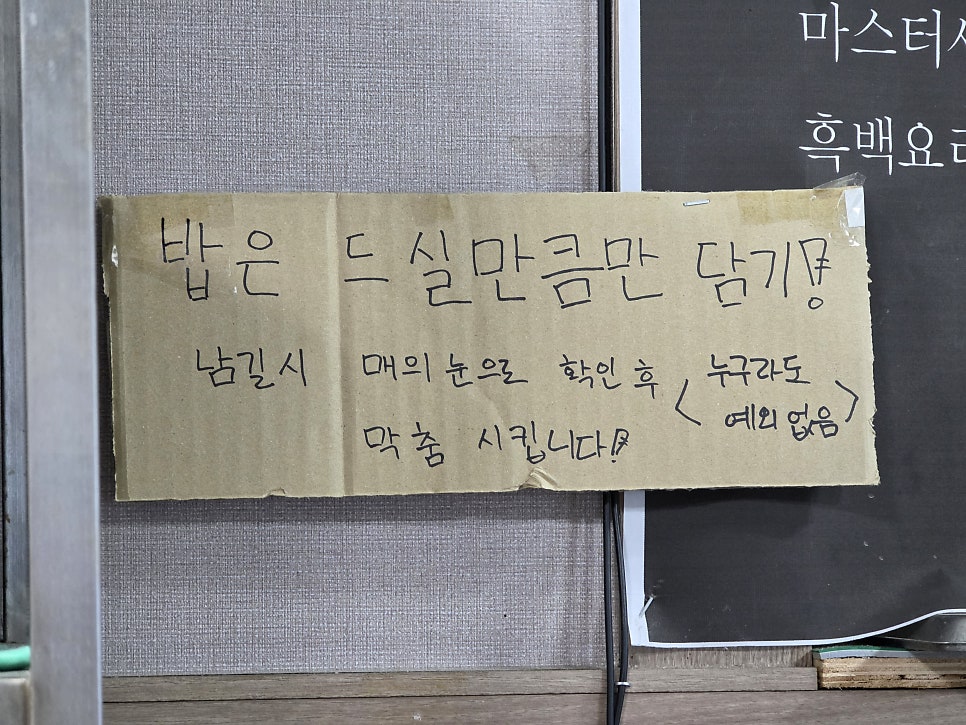 마스터
흑백요
밥은 드실만큼만 담기!
남길시 매의 눈으로 확인 후 <누구라도
예외 없음>
막춤 시킵니다!